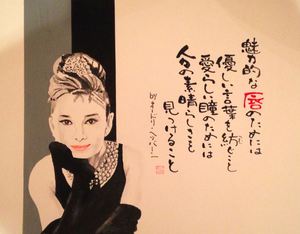 魅力的な唇のためには
優しい言葉を紡ぐこと
愛らしい瞳のためには
人々の素晴らしさを
見つけること
byオードリー・ヘプバーン